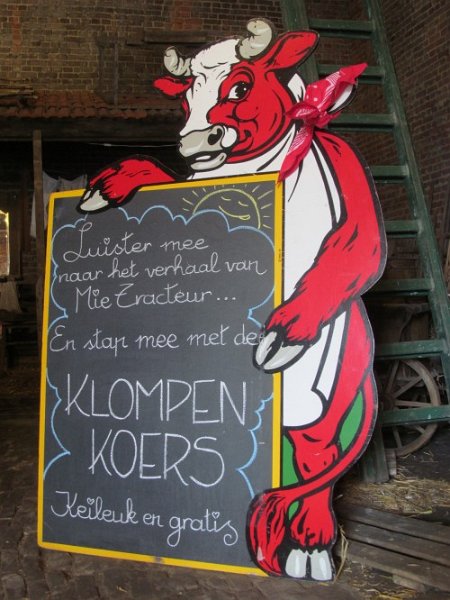 Luister mee
naar het verhaal van
Mie Tracteur...
En stap mee met de
KLOMPEN
KOERS
Keileuk en gratis